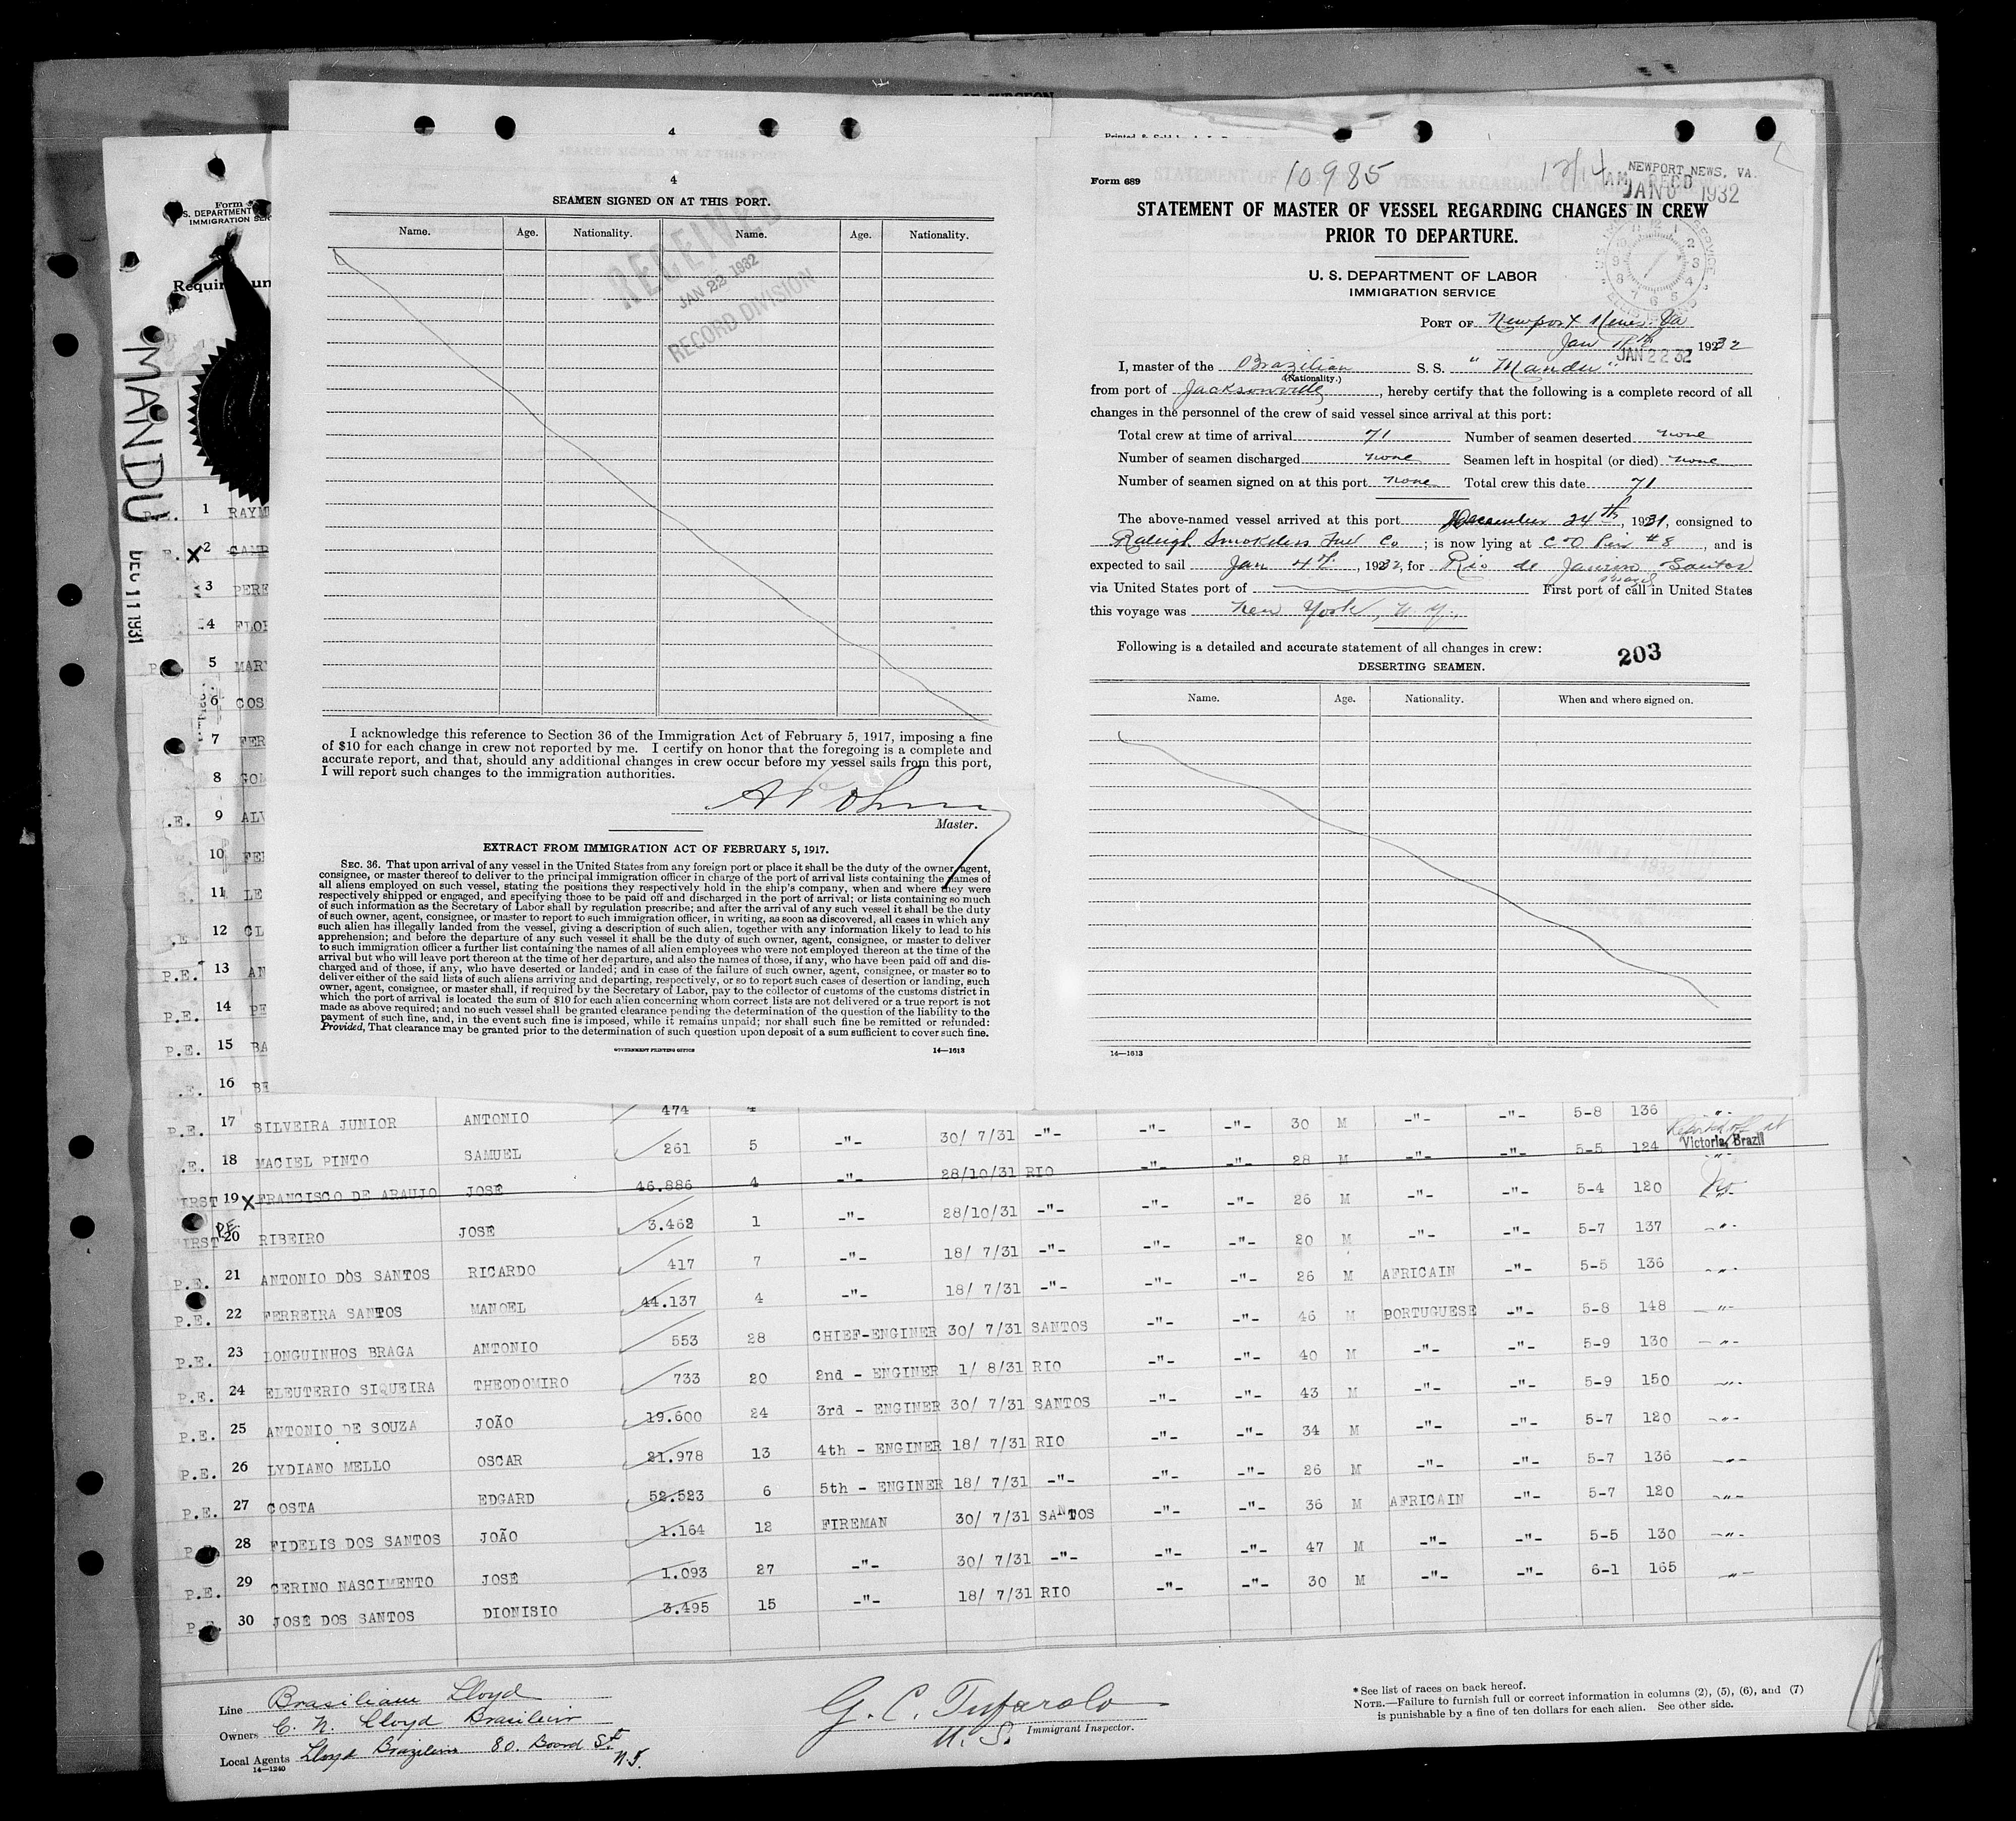 4
4
SEAMEN SIGNED ON AT THIS PORT.
Name. Age. Nationality. Name. Age. Nationality.
RECEIVED
JAN 22 1932
RECORD DIVISION
I acknowledge this reference to Section 36 of the Immigration Act of February 5, 1917, imposing a fine
of $10 for each change in crew not reported by me. I certify on honor that the foregoing is a complete and
accurate report, and that, should any additional changes in crew occur before my vessel sails from this port,
I will report such changes to the immigration authorities.
Master.
EXTRACT FROM IMMIGRATION ACT OF FEBRUARY 5, 1917.
SEC. 36. That upon arrival of any vessel in the United States from any foreign port or place it shall be the duty of the owner, agent,
consignee, or master thereof to deliver to the principal immigration officer in charge of the port of arrival lists containing the names of
all aliens employed on such vessel, stating the positions they respectively hold in the ship's company, when and where they were
respectively shipped or engaged, and specifying those to be paid off and discharged in the port of arrival; or lists containing so much
of such information as the Secretary of Labor shall by regulation prescribe; and after the arrival of any such vessel it shall be the duty
of such owner, agent, consignee, or master to report to such immigration officer, in writing, as soon as discovered, all cases in which any
such alien has illegally landed from the vessel, giving a description of such alien, together with any information likely to lead to his
apprehension; and before the departure of any such vessel it shall be the duty of such owner, agent, consignee, or master to deliver
to such immigration officer a further list containing the names of all alien employees who were not employed thereon at the time of the
arrival but who will leave port thereon at the time of her departure, and also the names of those, if any, who have been paid off and dis-
charged and of those, if any, who have deserted or landed; and in case of the failure of such owner, agent, consignee, or master so to
deliver either of the said lists of such aliens arriving and departing, respectively, or so to report such cases of desertion or landing, such
owner, agent, consignee, or master shall, if required by the Secretary of Labor, pay to the collector of customs of the customs district in
which the port of arrival is located the sum of $10 for each alien concerning whom correct lists are not delivered or a true report is not
made as above required; and no such vessel shall be granted clearance pending the determination of the question of the liability to the
payment of such fine, and, in the event such fine is imposed, while it remains unpaid; nor shall such fine be remitted or refunded:
Provided, That clearance may be granted prior to the determination of such question upon deposit of a sum sufficient to cover such fine.
GOVERNMENT PRINTING OFFICE 14—1613
Form 689
10985
12/14
NEWPORT NEWS, VA.
1932
STATEMENT OF MASTER OF VESSEL REGARDING CHANGES IN CREW
PRIOR TO DEPARTURE.
U. S. DEPARTMENT OF LABOR
IMMIGRATION SERVICE
PORT OF Newport News, Va
Jan 1932
JAN 22 32
I, master of the Brazilian S. S. "Mandu"
(Nationality.)
from port of Jacksonville, hereby certify that the following is a complete record of all
changes in the personnel of the crew of said vessel since arrival at this port:
Total crew at time of arrival 71 Number of seamen deserted none
Number of seamen discharged none Seamen left in hospital (or died) none
Number of seamen signed on at this port none Total crew this date 71
The above-named vessel arrived at this port December 24th, 1931, consigned to
Raleigh Smokeless Fuel Co; is now lying at C&O Pier #8, and is
expected to sail Jan 4th, 1932, for Rio de Janeiro Santos
Brazil
via United States port of First port of call in United States
this voyage was New York, N.Y.
Following is a detailed and accurate statement of all changes in crew:
203
DESERTING SEAMEN.
Name. Age. Nationality. When and where signed on.
14—1613
Form
S. DEPARTMENT
IMMIGRATION SER
Requir un
MANDU
DEC 11 1931
1 RAYM
X 2 CAMP
3 PERE
4 FLOR
5 MAR
6 COS
7 FER
8 GOM
9 ALV
10 FER
11 LE
12 CL
P.E. 13 AN
P.E. 14 PE
P.E. 15 BA
16 BE
P.E. 17 SILVEIRA JUNIOR ANTONIO 474 4 30 M -"- -"- 5-8 136 -"-
P.E. 18 MACIEL PINTO SAMUEL 261 5 -"- 30/ 7/31 -"- -"- -"- 28 M -"- -"- 5-5 124 Victoria, Brazil
FIRST 19 X FRANCISCO DE ARAUJO JOSÉ 46.886 4 -"- 28/10/31 RIO -"- -"- 26 M -"- -"- 5-4 120
FIRST P.E. 20 RIBEIRO JOSÉ 3.462 1 -"- 28/10/31 -"- -"- -"- 20 M -"- -"- 5-7 137 -"-
P.E. 21 ANTONIO DOS SANTOS RICARDO 417 7 -"- 18/ 7/31 -"- -"- -"- 26 M AFRICAIN -"- 5-5 136 -"-
P.E. 22 FERREIRA SANTOS MANOEL 44.137 4 -"- 18/ 7/31 -"- -"- -"- 46 M PORTUGUESE -"- 5-8 148 -"-
P.E. 23 LONGUINHOS BRAGA ANTONIO 553 28 CHIEF-ENGINER 30/ 7/31 SANTOS -"- -"- 40 M -"- -"- 5-9 130 -"-
P.E. 24 ELEUTERIO SIQUEIRA THEODOMIRO 733 20 2nd - ENGINER 1/ 8/31 RIO -"- -"- 43 M -"- -"- 5-9 150 -"-
P.E. 25 ANTONIO DE SOUZA JOÃO 19.600 24 3rd - ENGINER 30/ 7/31 SANTOS -"- -"- 34 M -"- -"- 5-7 120 -"-
P.E. 26 LYDIANO MELLO OSCAR 21.978 13 4th - ENGINER 18/ 7/31 RIO -"- -"- 26 M -"- -"- 5-7 136 -"-
P.E. 27 COSTA EDGARD 52.523 6 5th - ENGINER 18/ 7/31 -"- -"- -"- 36 M AFRICAIN -"- 5-7 120 -"-
28 FIDELIS DOS SANTOS JOÃO 1.164 12 FIREMAN 30/ 7/31 SANTOS -"- -"- 47 M -"- -"- 5-5 130 -"-
P.E. 29 CERINO NASCIMENTO JOSÉ 1.093 27 -"- 30/ 7/31 -"- -"- -"- 30 M -"- -"- 6-1 165 -"-
30 JOSÉ DOS SANTOS DIONISIO 3.495 15 -"- 18/ 7/31 RIO
Line Brasilian Lloyd
Owners C. N. Lloyd Brasileiro
Local Agents Lloyd Brazileiro 80. Board St. N.Y.
14—1240
G. C. Tufarolo
U. S. Immigrant Inspector.
* See list of races on back hereof.
NOTE.—Failure to furnish full or correct information in columns (2), (5), (6), and (7)
is punishable by a fine of ten dollars for each alien. See other side.